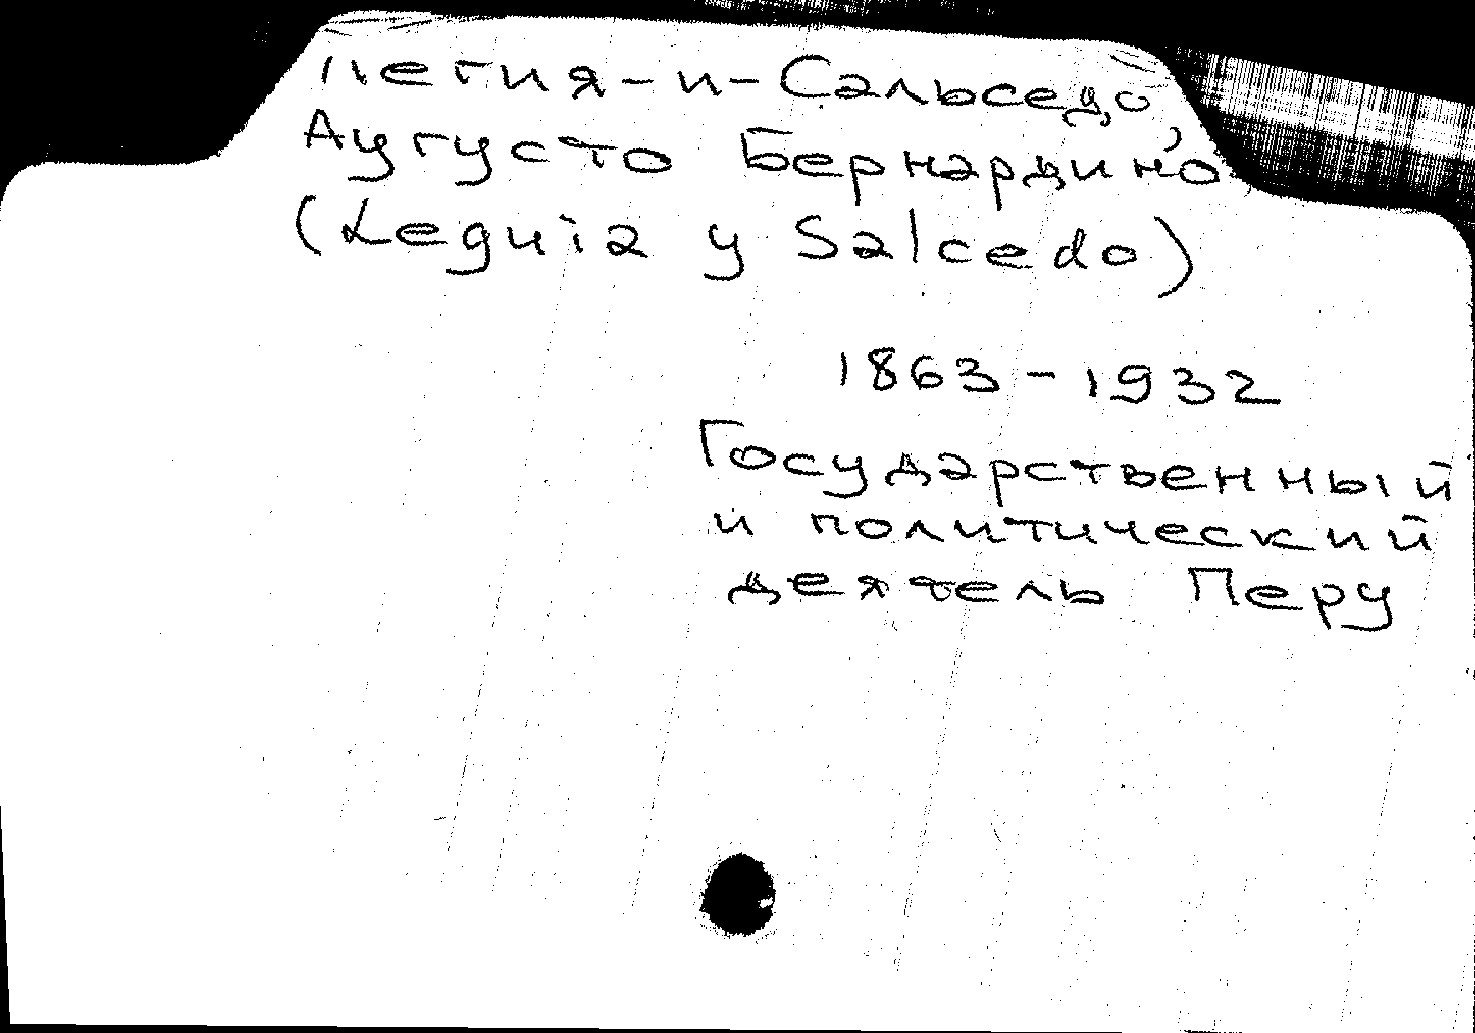 Легия-и-Сальседо,
Аугусто Бернардино
(Leguia y Salcedo)
1863-1932
Государственный
и политический
деятель Перу